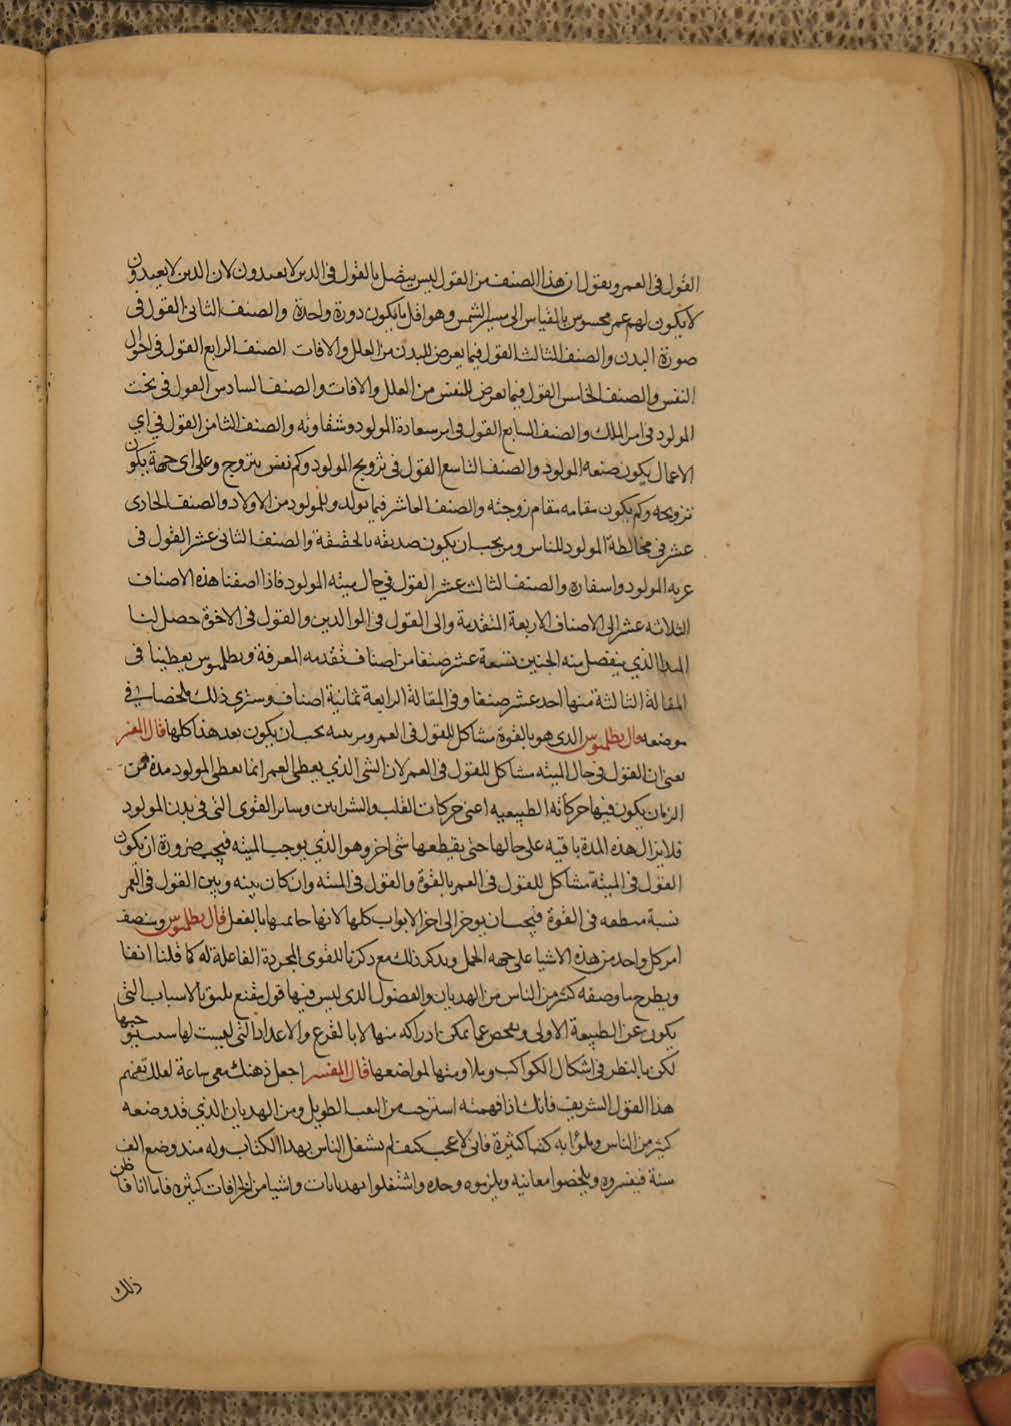 القول فى العمر ويقول ان هذا الصنف من القول ليس يتصل بالقول فى الدين لا يعيدون لان الدين لا يعيدون
لا يكون لهم عمر محسوس بالقياس الى مسير الشمس وهو اقل ما يكون دورة واحدة والصنف الثانى القول فى
صورة البدن والصنف الثالث القول فيما يعرض للبدن من العلل والافات الصنف الرابع القول فى احوال
النفس والصنف الخامس القول فيما تعرض للنفس من العلل والافات والصنف السادس القول فى بخت
المولود فى امر الملك والصنف السابع القول فى امر سعادة المولود وشقاوته والصنف الثامن القول فى اي
الاعمال يكون صنعه المولود والصنف التاسع القول فى تزويج المولود وكم نفس يتزوج وعلى اى جهة يكون
تزويجه وكم يكون مقامه مقام زوجته والصنف العاشر فيما يولد للمولود من الاولاد والصنف الحادى
عشر فى مخالطة المولود للناس ومن يجب ان يكون صديقه بالحقيقة والصنف الثانى عشر القول فى
غربه المولود واسفاره والصنف الثالث عشر القول فى حال ميته المولود فاذا اضفنا هذه الاصناف
الثلاثه عشر الى الاصناف الاربعة المتقدمة والى القول فى الوالدين والقول فى الاخوة حصل لنا
المبدا الذي ينفصل منه الجنين تسعة عشر صنفا من اصناف تقدمه المعرفة وبطلميوس يعطينا فى
المقالة الثالثة منها احد عشر صنفا وفى المقالة الرابعة ثمانية اصناف وسترى ذلك ملخصا فى
موضعه قال بطلميوس الذى هو بالقوة مشاكل للقول فى العمر ومرتبته يجب ان يكون بعد هذا كلها قال المفسر
يعنى ان القول فى حال الميته مشاكل للقول فى العمر لان الشى الذي يعطى العمر انما يعطى المولود مدة من
الزمان يكون فيها حركاته الطبيعيه اعنى حركات القلب والشرايين وسائر القوى التى فى بدن المولود
فلا يزال هذه المدة باقيه على حالها حتى يقطعها شى اخر وهو الذي يوجب الميته فيجب ضرورة ان يكون
القول فى الميتة مشاكل للقول فى العمر بالقوة والقول فى الميته وان كان بينه وبين القول فى العمر
نسبة فى القوة فيجب ان يوخر الى اخر الابواب كلها لانها خاتمتها بالفعل قال بطلميوس وسنصف
امر كل واحد من هذه الاشيا على جهه الجمل ونذكر ذلك مع ذكرنا للقوى المجردة الفاعلة له كما قلنا انفا
ويطرح ما وصفه كثير من الناس من الهذيان والفضول الذى ليس فيها قول يقنع يليق بالاسباب التى
يكون عن الطبيعة الاولى ونفحص عما يمكن ادراكه منها لا بالقرع والاعداد التى ليست لها سبب يوجبها
لكن بالنظر فى اشكال الكواكب وملاومتها لمواضعها قال المفسر اجعل ذهنك معى ساعة لعلك تفهم
هذا القول الشريف فانك اذا فهمته استرحت من التعب الطويل ومن الهذيان الذي قد وضعه
كثير من الناس وملؤا به كتبا كثيرة فانى لاعجب كيف لم يشغل الناس بهذا الكتاب وله منذ وضع الف
سنة فيفسروه ويلخصوا معانيه ويلزموه وحده واشتغلوا بهديانات واشيا من الخرافات كثيره فاما انا فان
ذلك